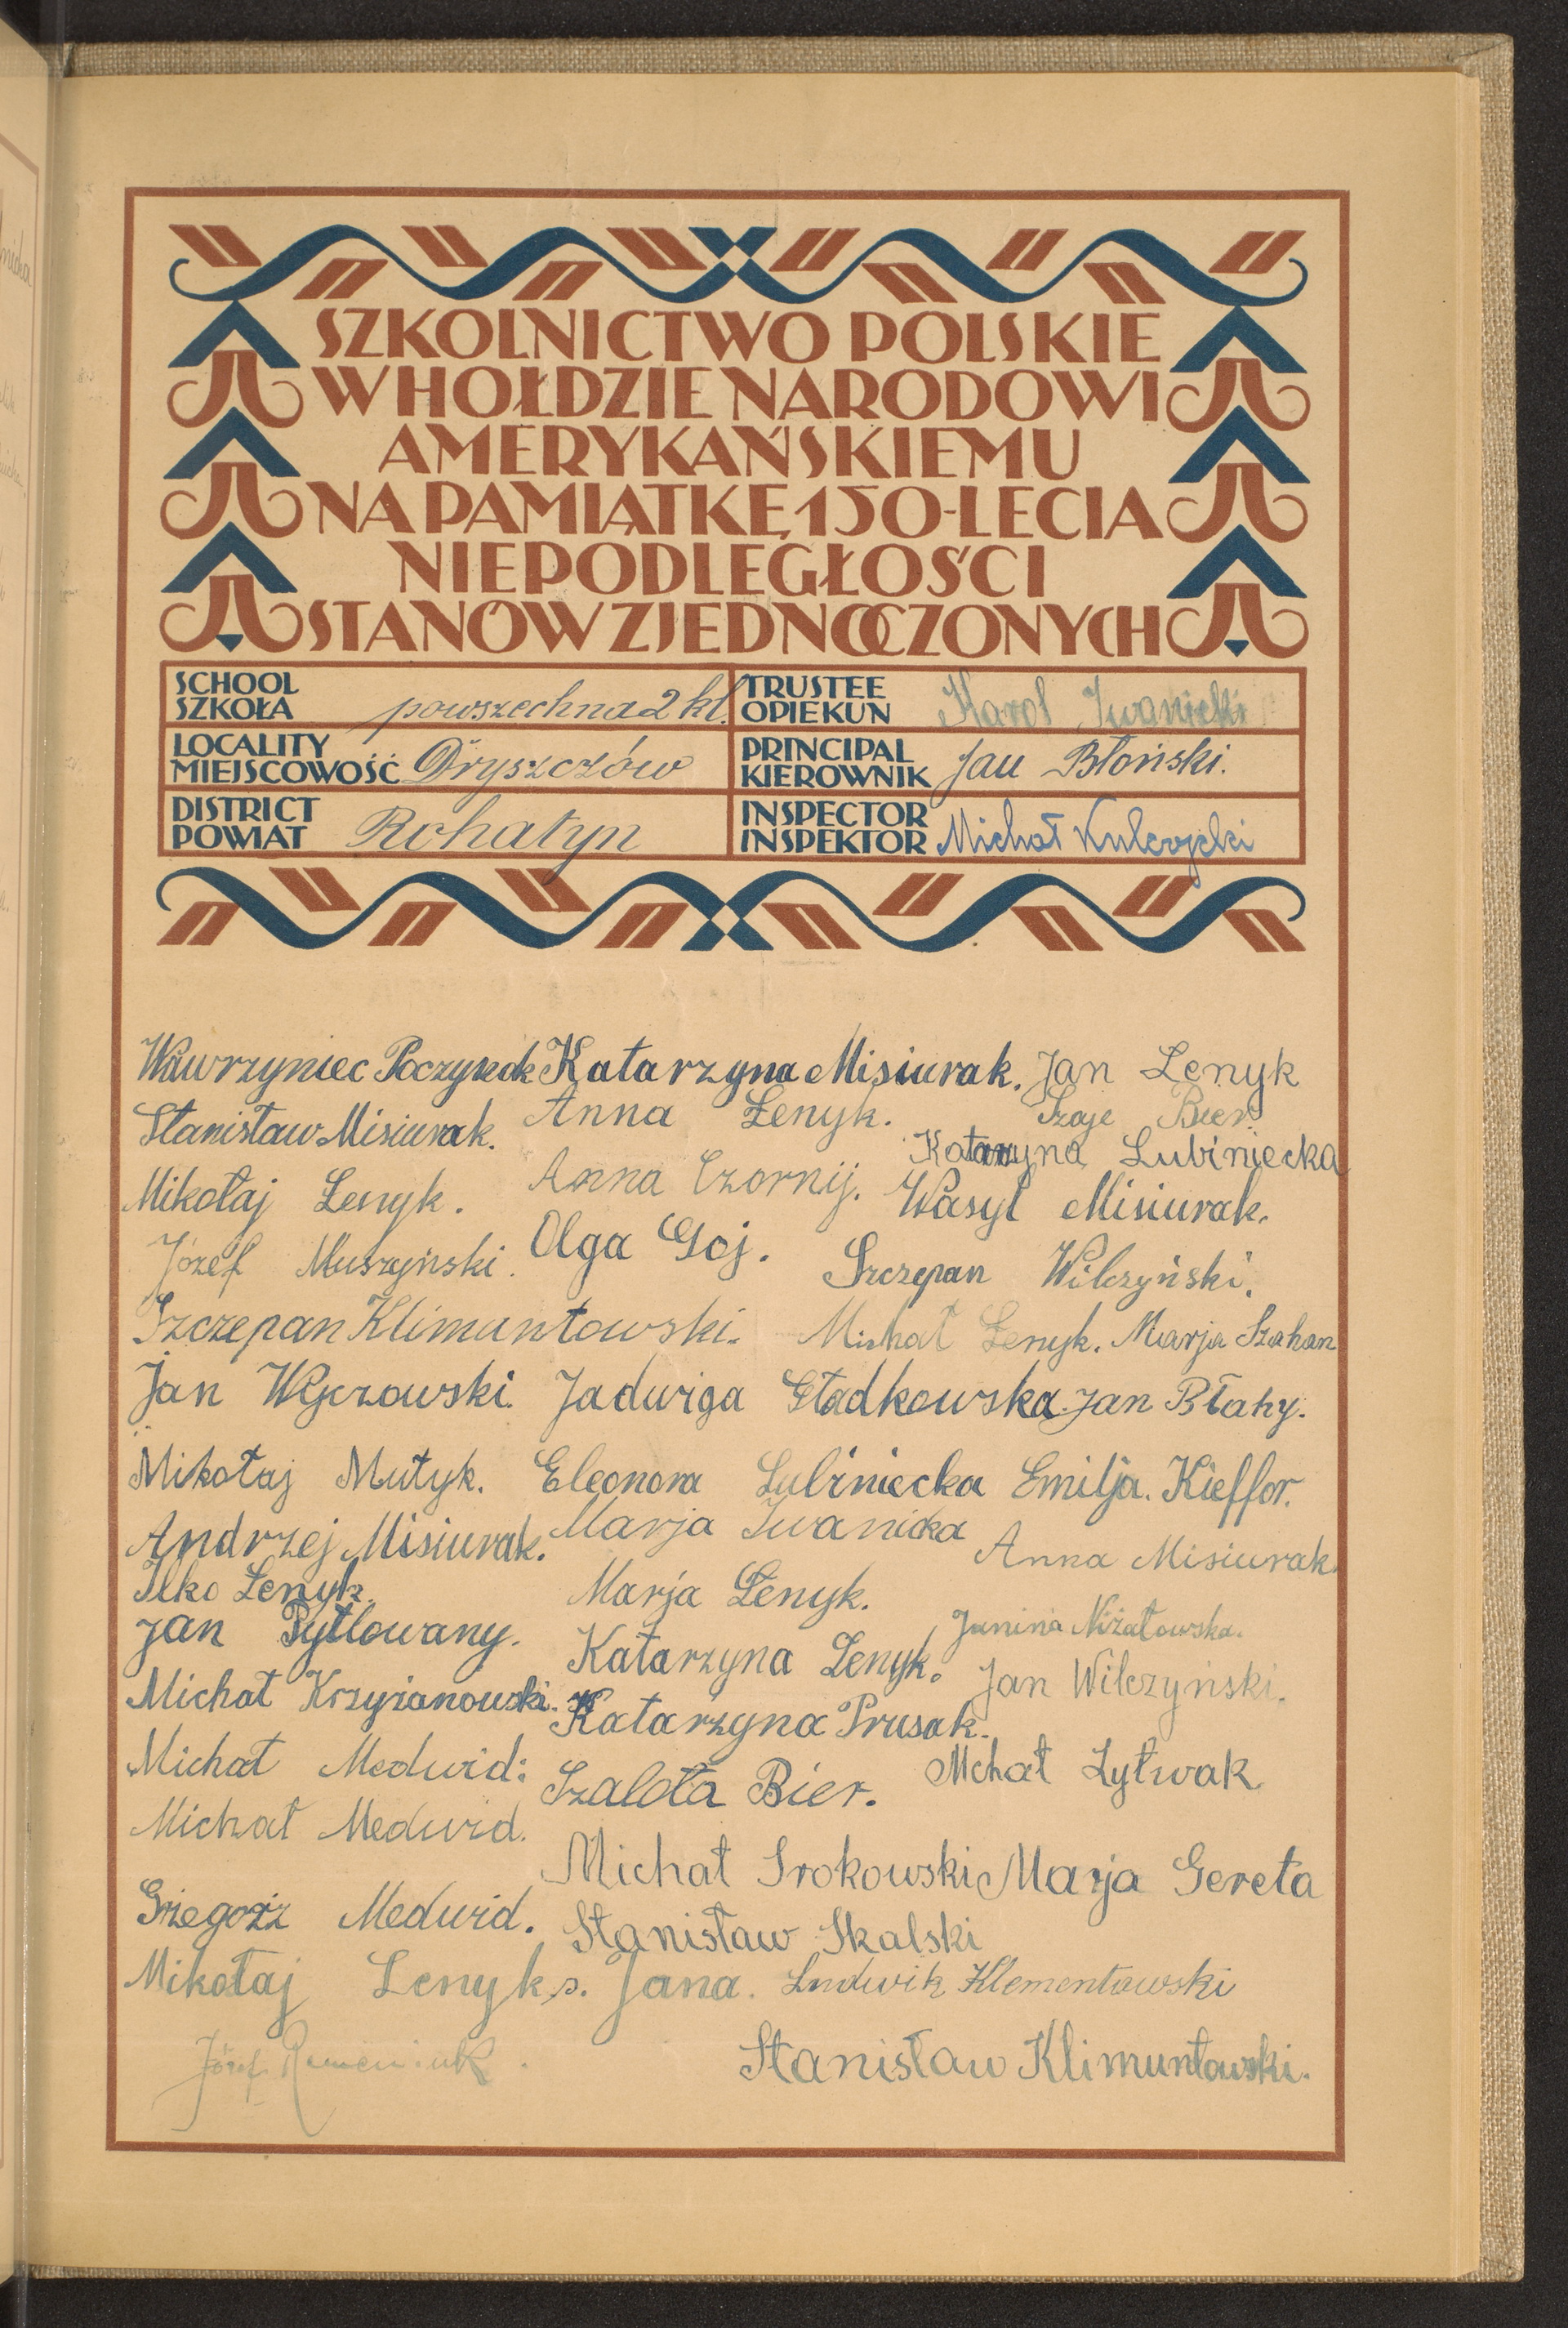 SZKOLNICTWO POLSKIE
W HOŁDZIE NARODOWI
AMERYKAŃSKIEMU
NA PAMIĄTKĘ 150-LECIA
NIEPODLEGŁOŚCI
STANÓW ZJEDNOCZONYCH
SCHOOL
SZKOŁA
powszechna 2 kl.
TRUSTEE
OPIEKUN
Karol Iwanicki
LOCALITY
MIEJSCOWOŚĆ
Dryszczów
PRINCIPAL
KIEROWNIK
Jan Błoński.
DISTRICT
POWIAT
Rohatyn
INSPECTOR
INSPEKTOR
Michał
Wawrzyniec Poczynok Katarzyna Misiurak. Jan Lenyk
Stanisław Misiurak. Anna Łenyk. Szaje Bier
Katarzyna Lubiniecka
Mikołaj Łenyk. Anna Czornij. Wasyl Misiurak.
Józef Muszyński. Olga Goj. Szczepan Wilczyński.
Szczepan Klimuntowski. Michał Łenyk. Marja Szahan
Jan Wyczowski. Jadwiga Gładkowska. Jan Błahy.
Mikołaj Mutyk. Eleonora Lubiniecka Emilja. Kieffor.
Andrzej Misiurak. Marja Iwanicka Anna Misiurak.
Ilko Łenyk. Marja Łenyk.
Jan Pytlowany. Katarzyna Łenyk. Janina Niżałowska.
Michał Krzyżanowski. Katarzyna Prusak. Jan Wilczyński.
Michał Medwid: Szalota Bier. Mchał Łytwak
Michał Medwid. Michał Srokowski Marja Gereta
Grzegorz Medwid. Stanisław Skalski
Mikołaj Lenyk s. Jana. Ludwik Klementowski
Józef Stanisław Klimuntowski.